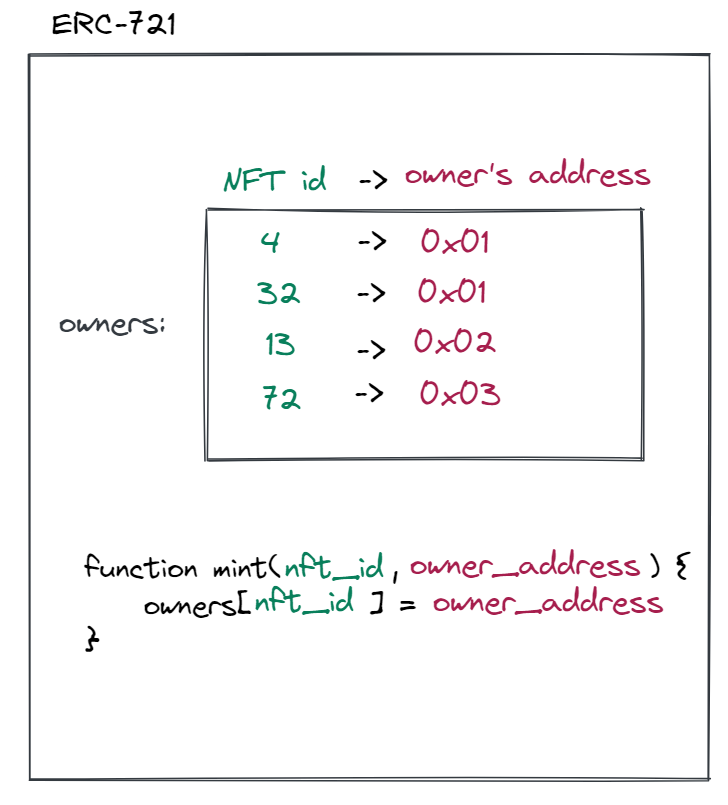 ERC-721
NFT id -> owner's address
4 -> 0x01
32 -> 0x01
owners:
13 -> 0x02
72 -> 0x03
function mint(nft_id, owner_address) {
owners[nft_id ] = owner_address
}